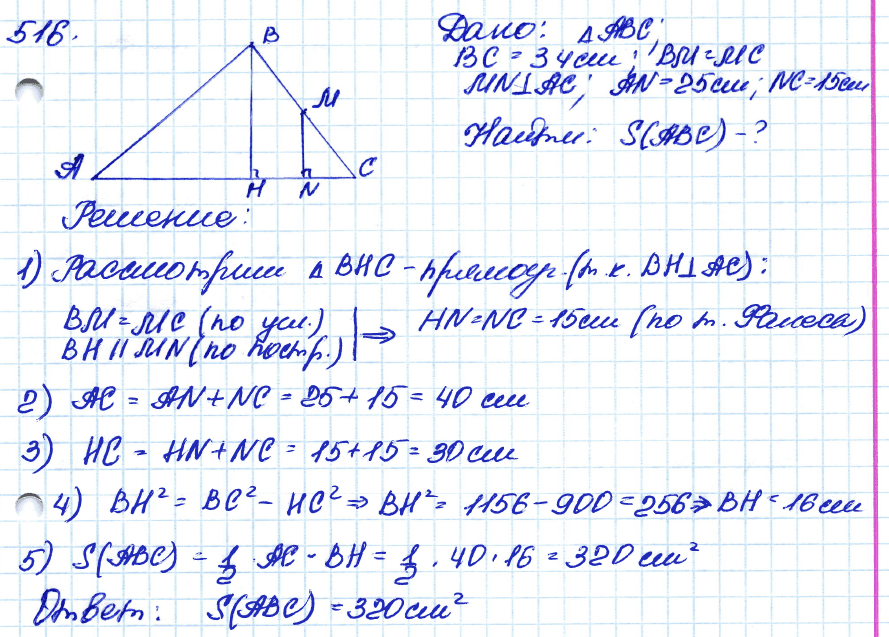 516.
B
M
A
H
N
C
Дано: △ABC;
BC = 34см; BM=MC
MN⊥AC; AN=25см; NC=15см
Найти: S(ABC) -?
Решение:
1) Рассмотрим △ BHC - прямоуг. (т.к. BH⊥AC):
BM = MC (по усл.)
BH || MN (по постр.)
⇒ HN=NC=15см (по т. Фалеса)
2) AC = AN+NC = 25+15 = 40 см
3) HC = HN+NC = 15+15=30см
4) BH² = BC² - HC² ⇒ BH² = 1156-900=256 ⇒ BH = 16см
5) S(ABC) = 1/2 · AC · BH = 1/2 · 40 · 16 = 320 см²
Ответ: S(ABC) = 320см²